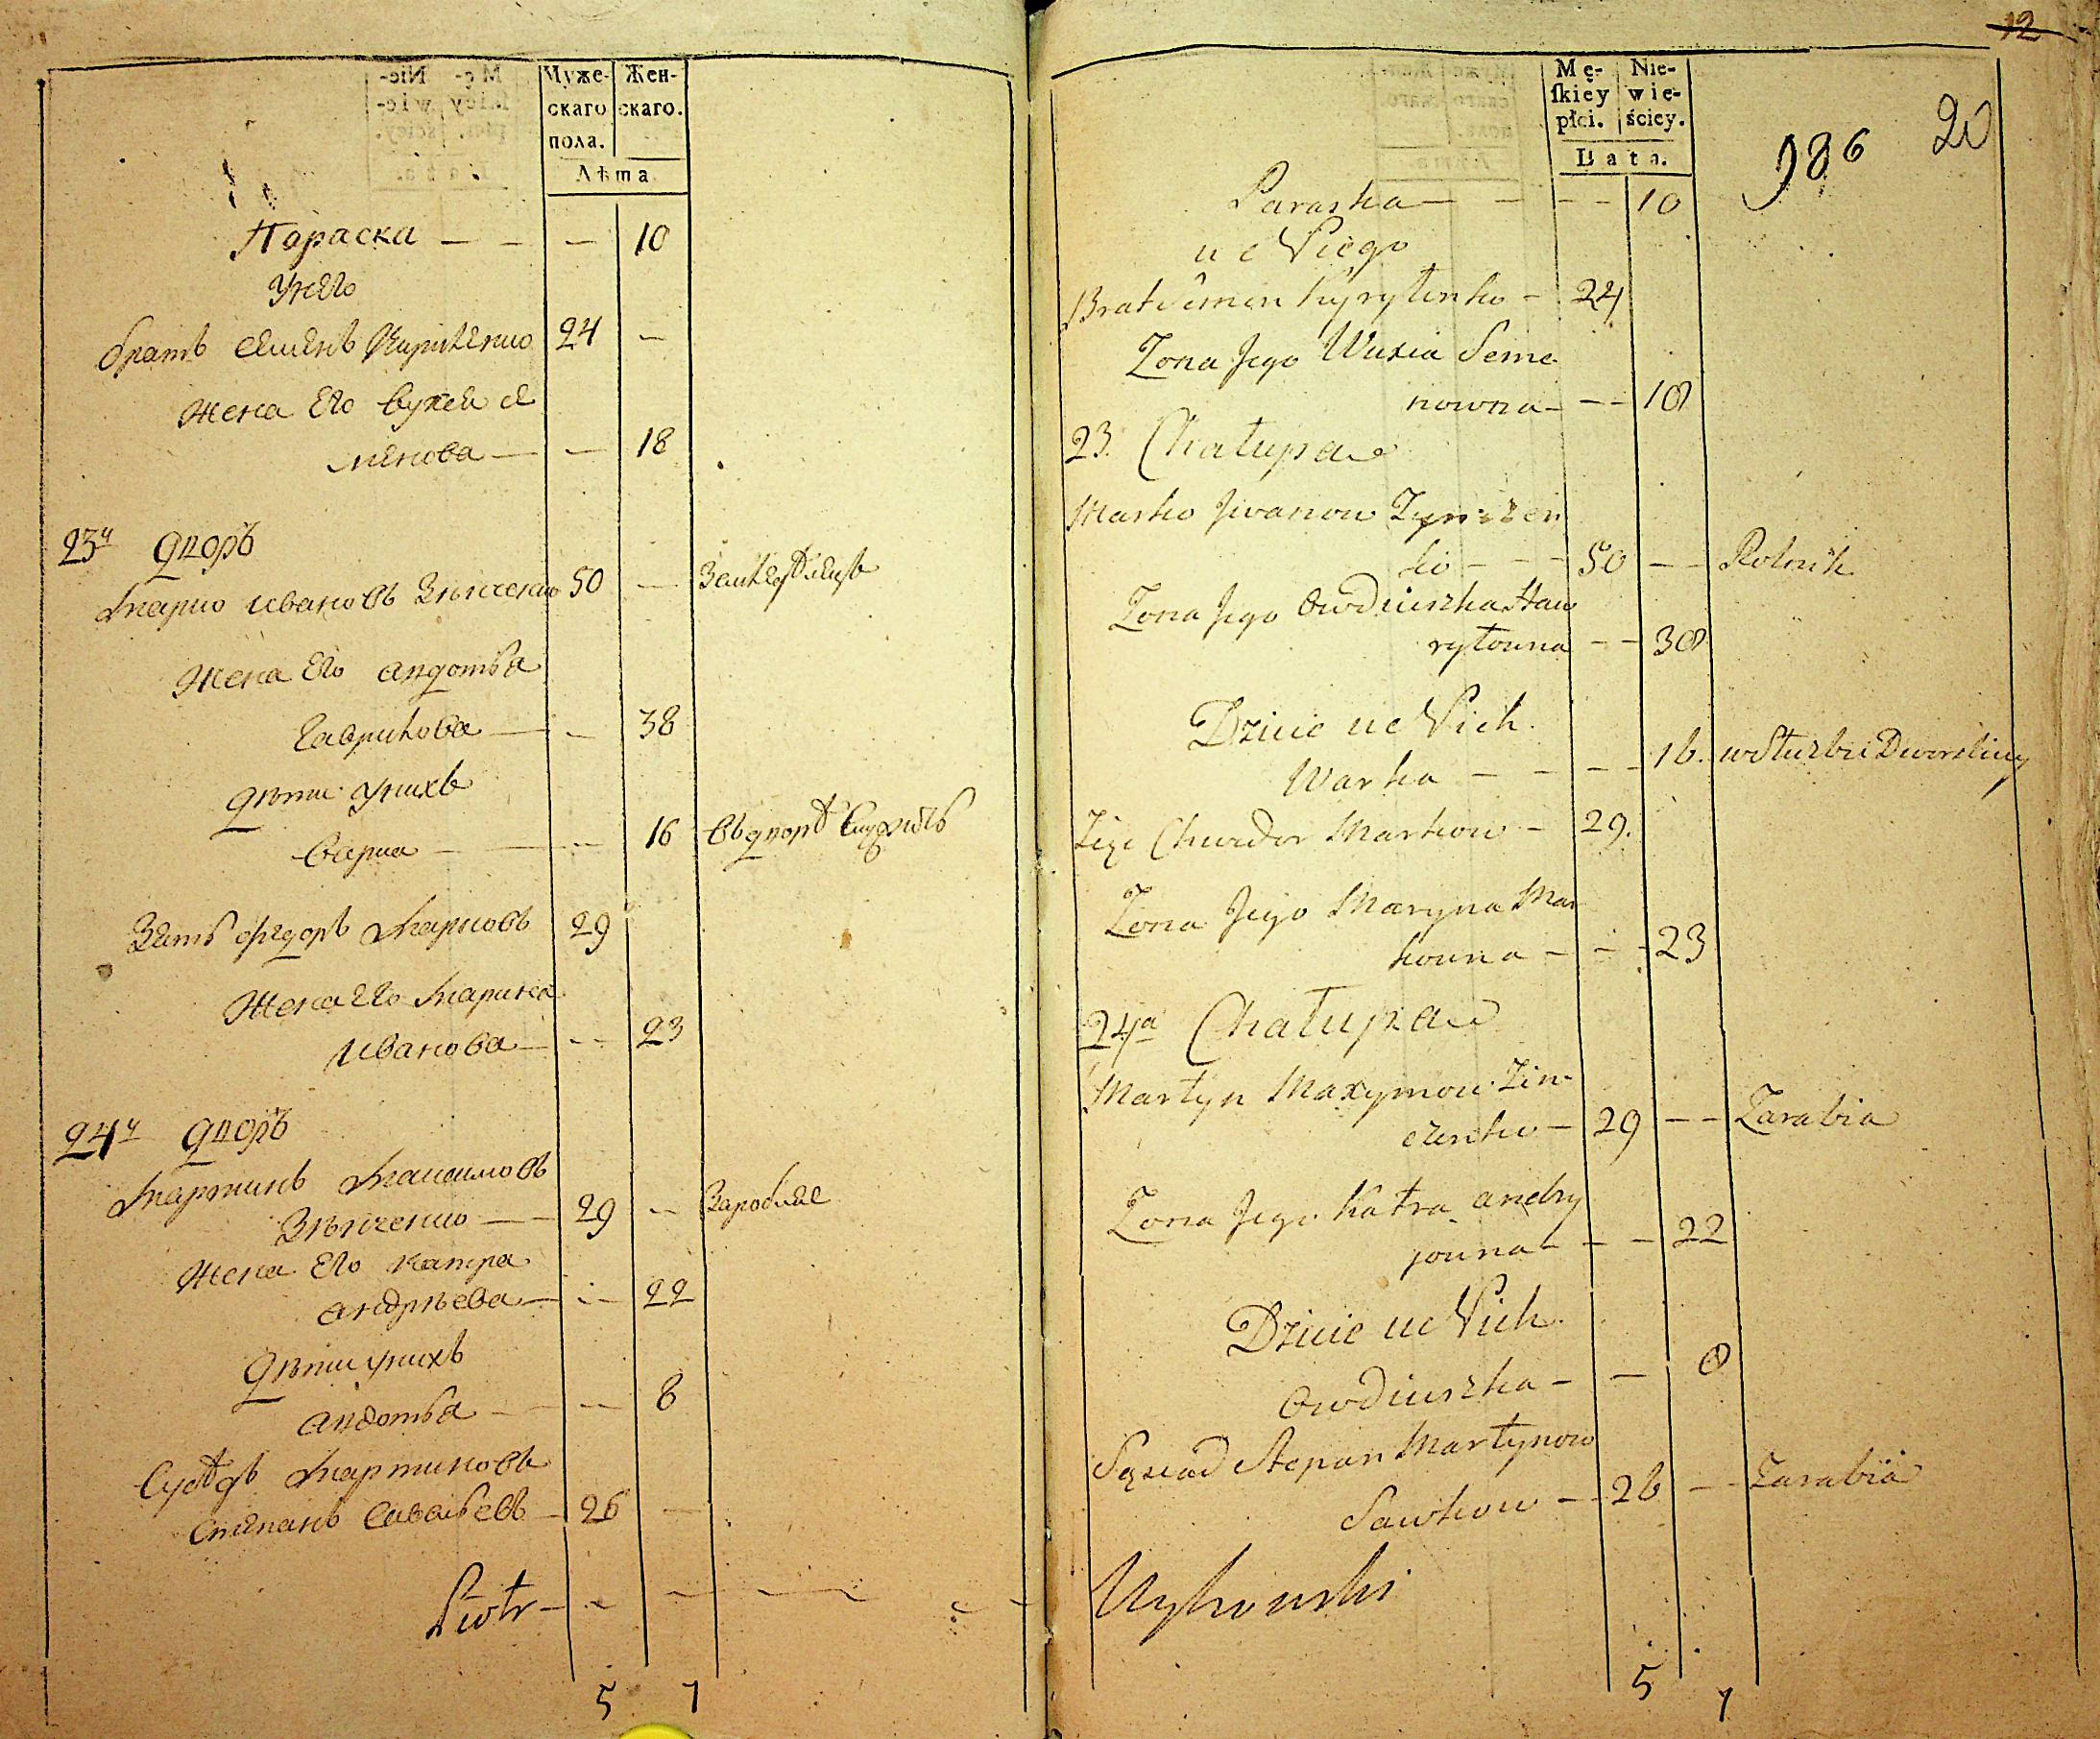 Муже- Жен-
скаго скаго.
пола.
Лѣта
Параска — — — 10
У него
братъ Семенъ Кириленко 24 —
жена его Вухея Се
менова — — 18
23й дворъ
Марко Ивановъ Зѣнченко 50 — Земледѣлецъ
жена его Авдотья
Гаврилова — — 38
дѣти у нихъ
Варка — — 16 въ дворѣ служитъ
Зять Федоръ Марковъ 29
жена его Марина
Иванова — — 23
24й дворъ
Мартинъ Максимовъ
Зѣнченко — 29 — Заробляе
жена его Катра
Андрѣева — — 22
дѣти у нихъ
Авдотья — — 8
Сусѣдъ Мартиновъ
Степанъ Савельевъ — 26 —
Piotr — — —
5 7
12
Mę- Nie-
ſkiey wie-
płci. ściey.
Lata.
986 20
Paraska — — — — 10
u Niego
Brat Semen Kyryłenko — 24
Zona Jego Wuxia Seme
nowna — — — 18
23. Chałupa
Marko Jwanow Zynczen
ko — — — 50 — — Rolnik
Zona Jego Owdiuszka Haw
ryłowna — — 38
Dzieci u Nich
Warka — — — — 16. w Służbie Dworskiey
Zięć Chwedor Markow — 29.
Zona Jego Maryna Mar
kowna — — — 23
24a Chałupa
Martyn Maxymow Zin
czenko — 29 — — Zarabia
Zona Jego Katra Andry
jowna — — — 22
Dzieci u Nich
Owdiuszka — — 8
Sąsiad Stepan Martynow
Sawkow — 26 — Zarabia
5 7